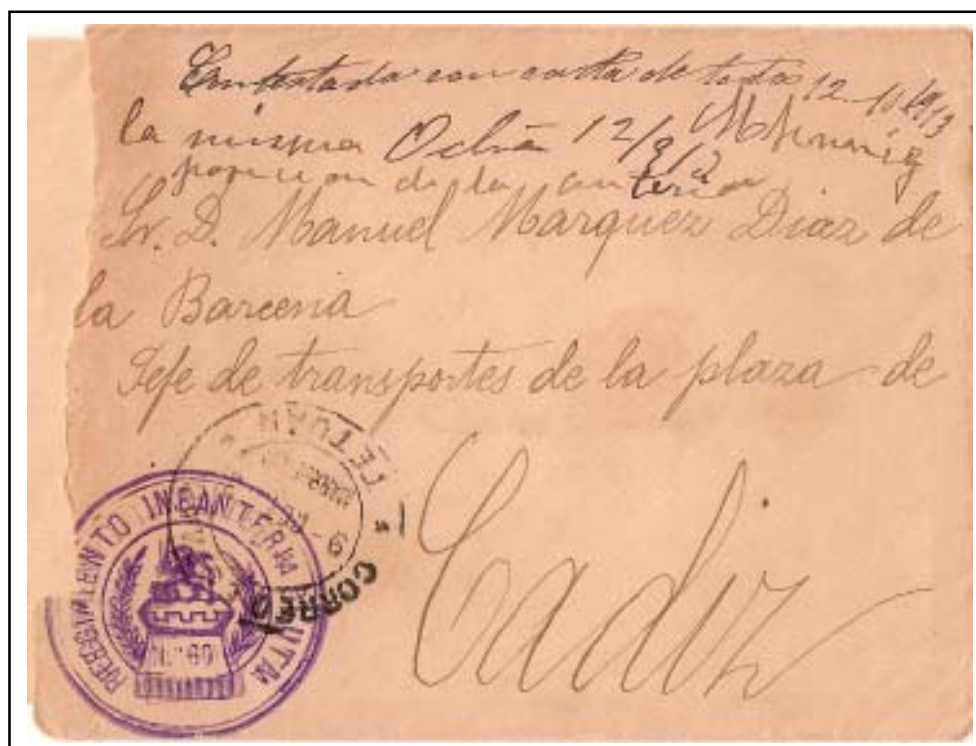 Contestada con carta de
la misma 12
de la anterior
Sr. D. Manuel Marquez Diaz de
la Barcena
Jefe de transportes de la plaza de
Cadiz
TETUAN
CORREO
REGIMIENTO INFANTERIA CEUTA
N.º 60